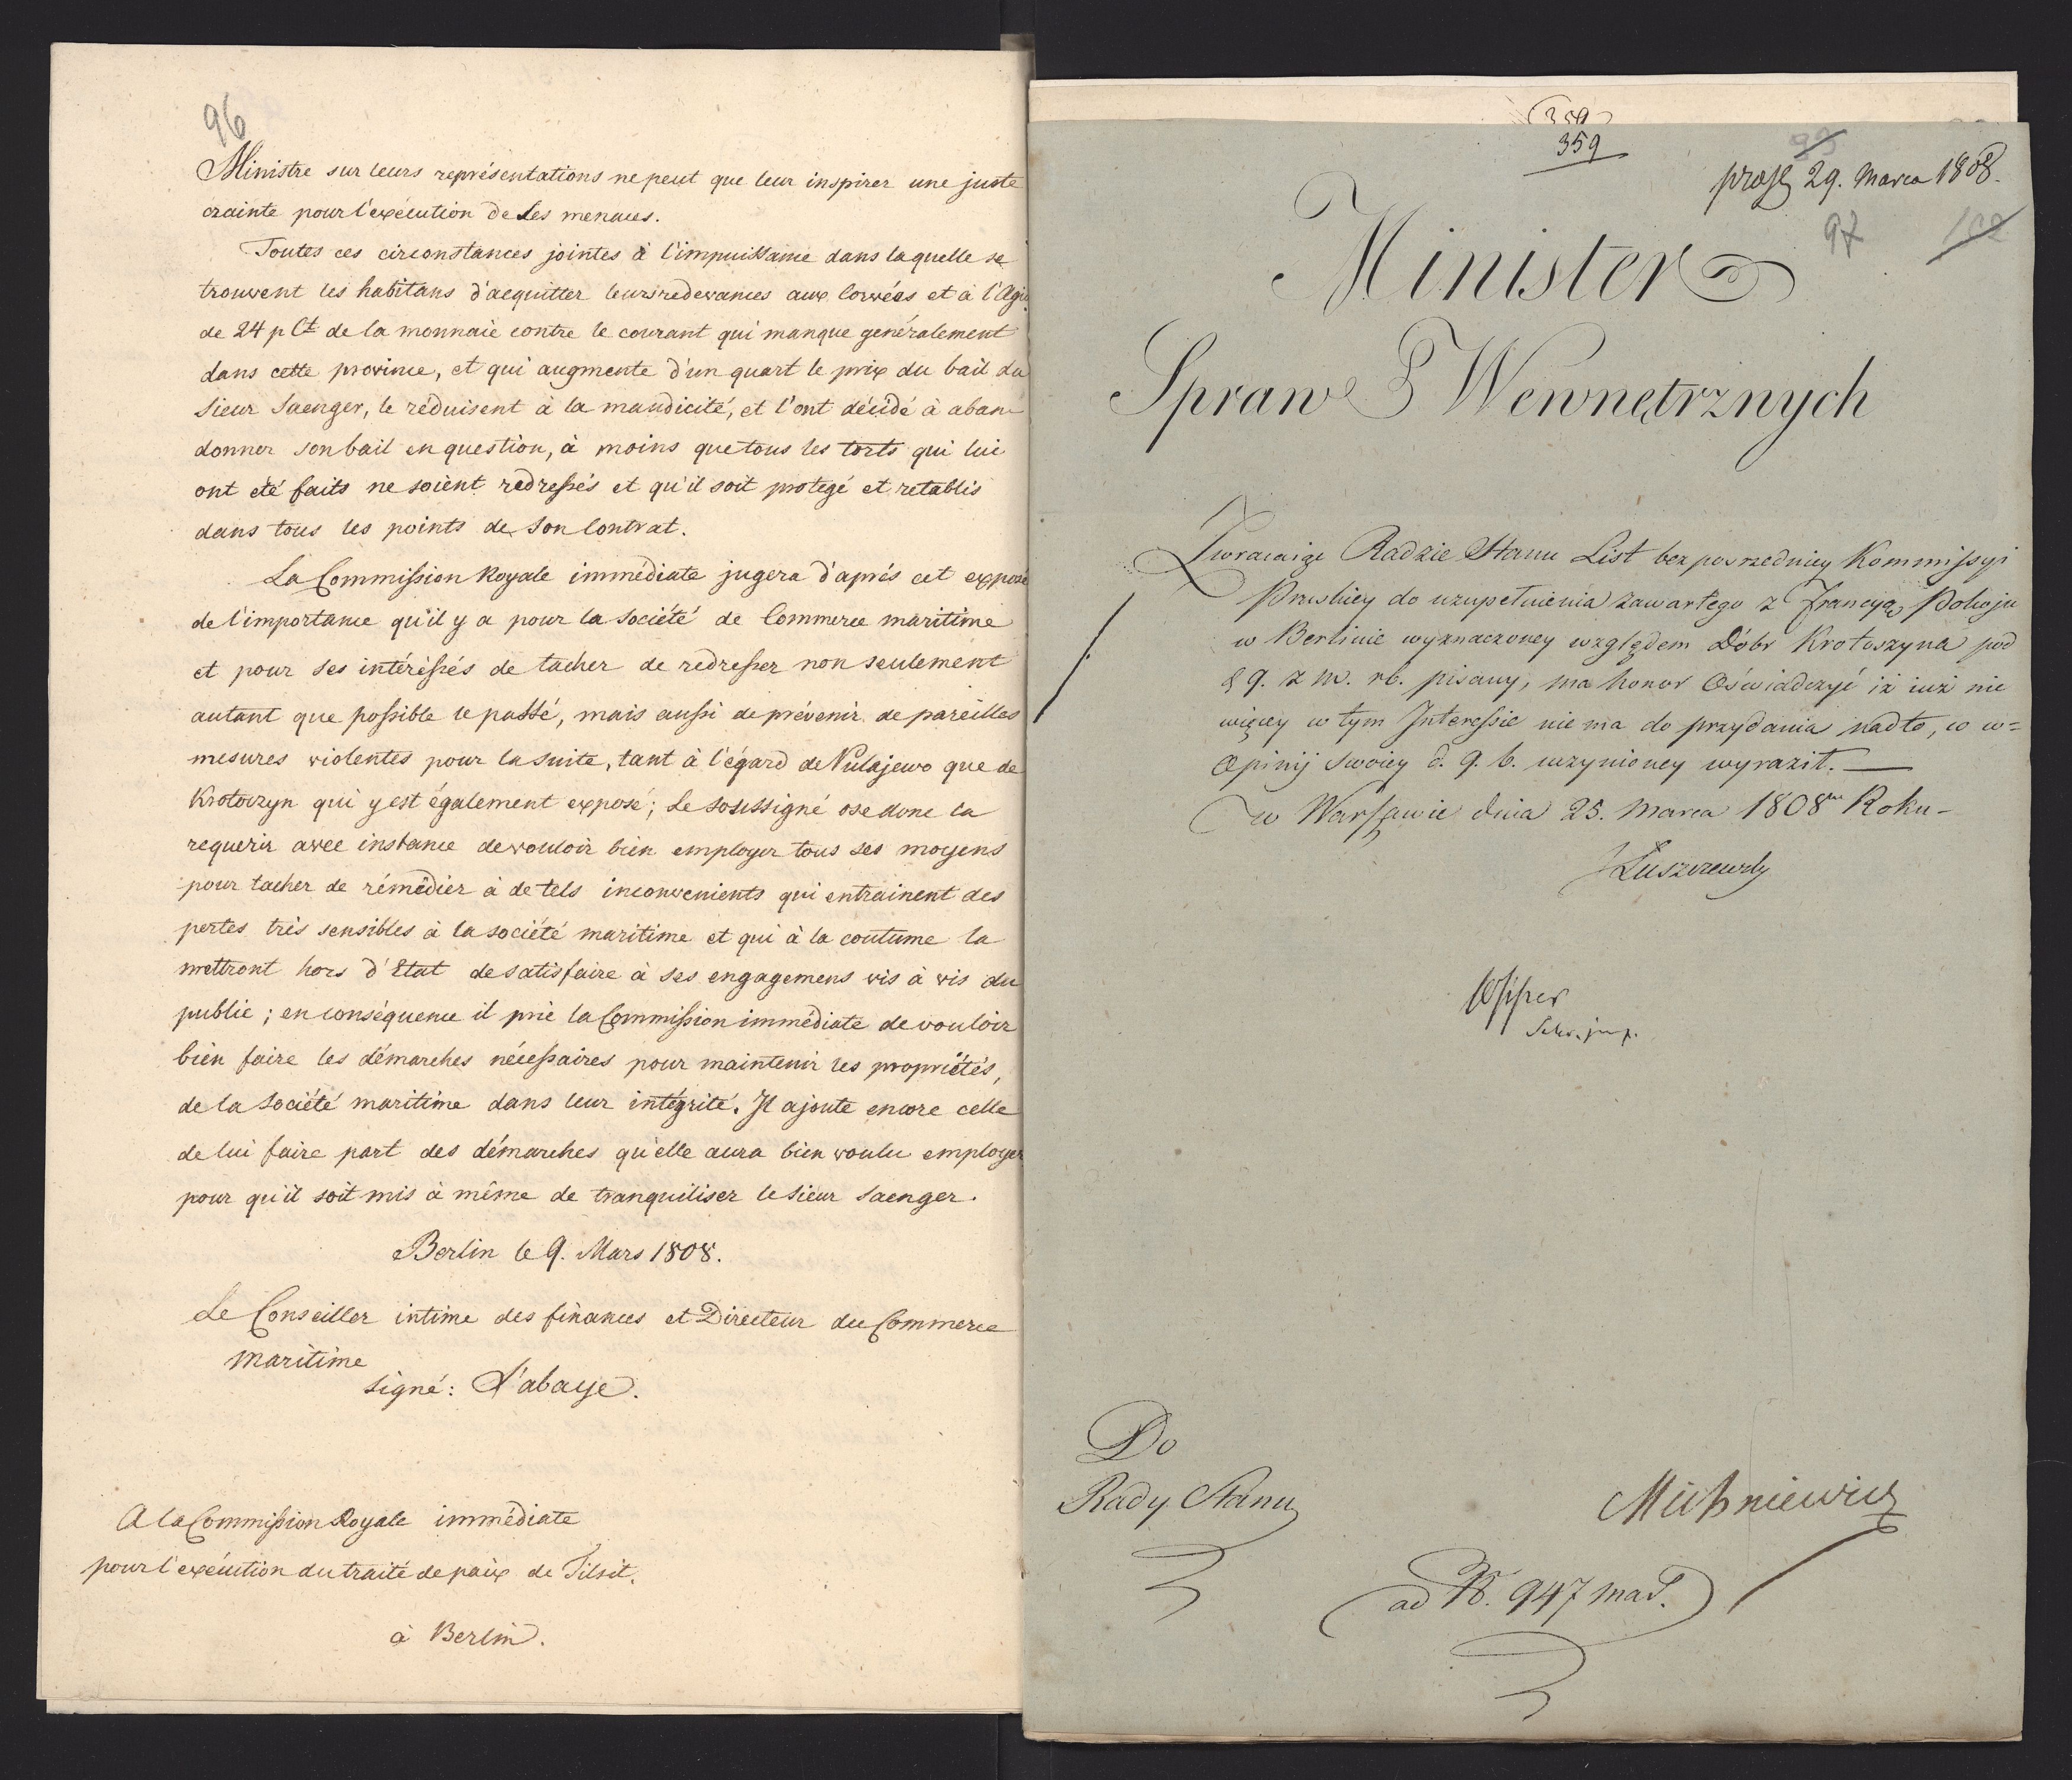 96
Ministre sur leurs représentations ne peut que leur inspirer une juste
crainte pour l'exécution de ses menaces.
Toutes ces circonstances jointes à l'impuissance dans laquelle se
trouvent les habitans d'acquitter leurs redevances aux Corvées et à l'Agio
de 24 p Ct de la monnaie contre le courant qui manque généralement
dans cette province, et qui augmente d'un quart le prix du bail du
Sieur Saenger, le réduisent à la mandicité, et l'ont décidé à aban-
donner son bail en question, à moins que tous les torts qui lui
ont été faits ne soient redressés et qu'il soit protegé et retablis
dans tous les points de son Contrat.
La Commission Royale immédiate jugera d'aprés cet exposé
de l'importance qu'il y a pour la Société de Commerce maritime
et pour ses intéréssés de tacher de redresser non seulement
autant que possible le passé, mais aussi de prévenir de pareilles
mesures violentes pour la suite, tant à l'égard de Pulajewo que de
Krotoczyn qui y est également exposé; Le Soussigné ose donc la
requerir avec instance de vouloir bien employer tous ses moyens
pour tacher de rémédier à de tels inconvenients qui entrainent des
pertes très sensibles à la société maritime et qui à la coutume la
mettront hors d'Etat de satisfaire à ses engagemens vis à vis du
public; en conséquence il prie la Commission immédiate de vouloir
bien faire les démarches nécessaires pour maintenir les propriétés,
de la Société maritime dans leur intégrité. Il ajoute encore celle
de lui faire part des démarches qu'elle aura bien voulu employer
pour qu'il soit mis à même de tranquiliser le Sieur Saenger.
Berlin le 9. Mars 1808.
Le Conseiller intime des finances et Directeur du Commerce
maritime
signé: L'abaye.
A la Commission Royale immédiate
pour l'exécution du traité de paix de Tilsit.
à Berlin.
359
359
29. Marca 1808.
97
102
Minister
Spraw Wewnętrznych
Zwracaiąc Radzie Stanu List bezposrzedniey Kommissyi
Pruskiey do uzupełnienia zawartego z Francyą Pokoju
w Berlinie wyznaczoney względem Dóbr Krotoszyna pod
d 9. z m. rb. pisany, ma honor Oświadczyć iż iuż nic
więcey w tym Interessie nie ma do przydania nad to, co w=
Opinij swoiey d. 9. b. uczynioney wyraził.
w Warszawie dnia 25. Marca 1808 Roku
Łuszczewsky
Do
Rady Stanu
Michniewicz
ad N. 947 mad.